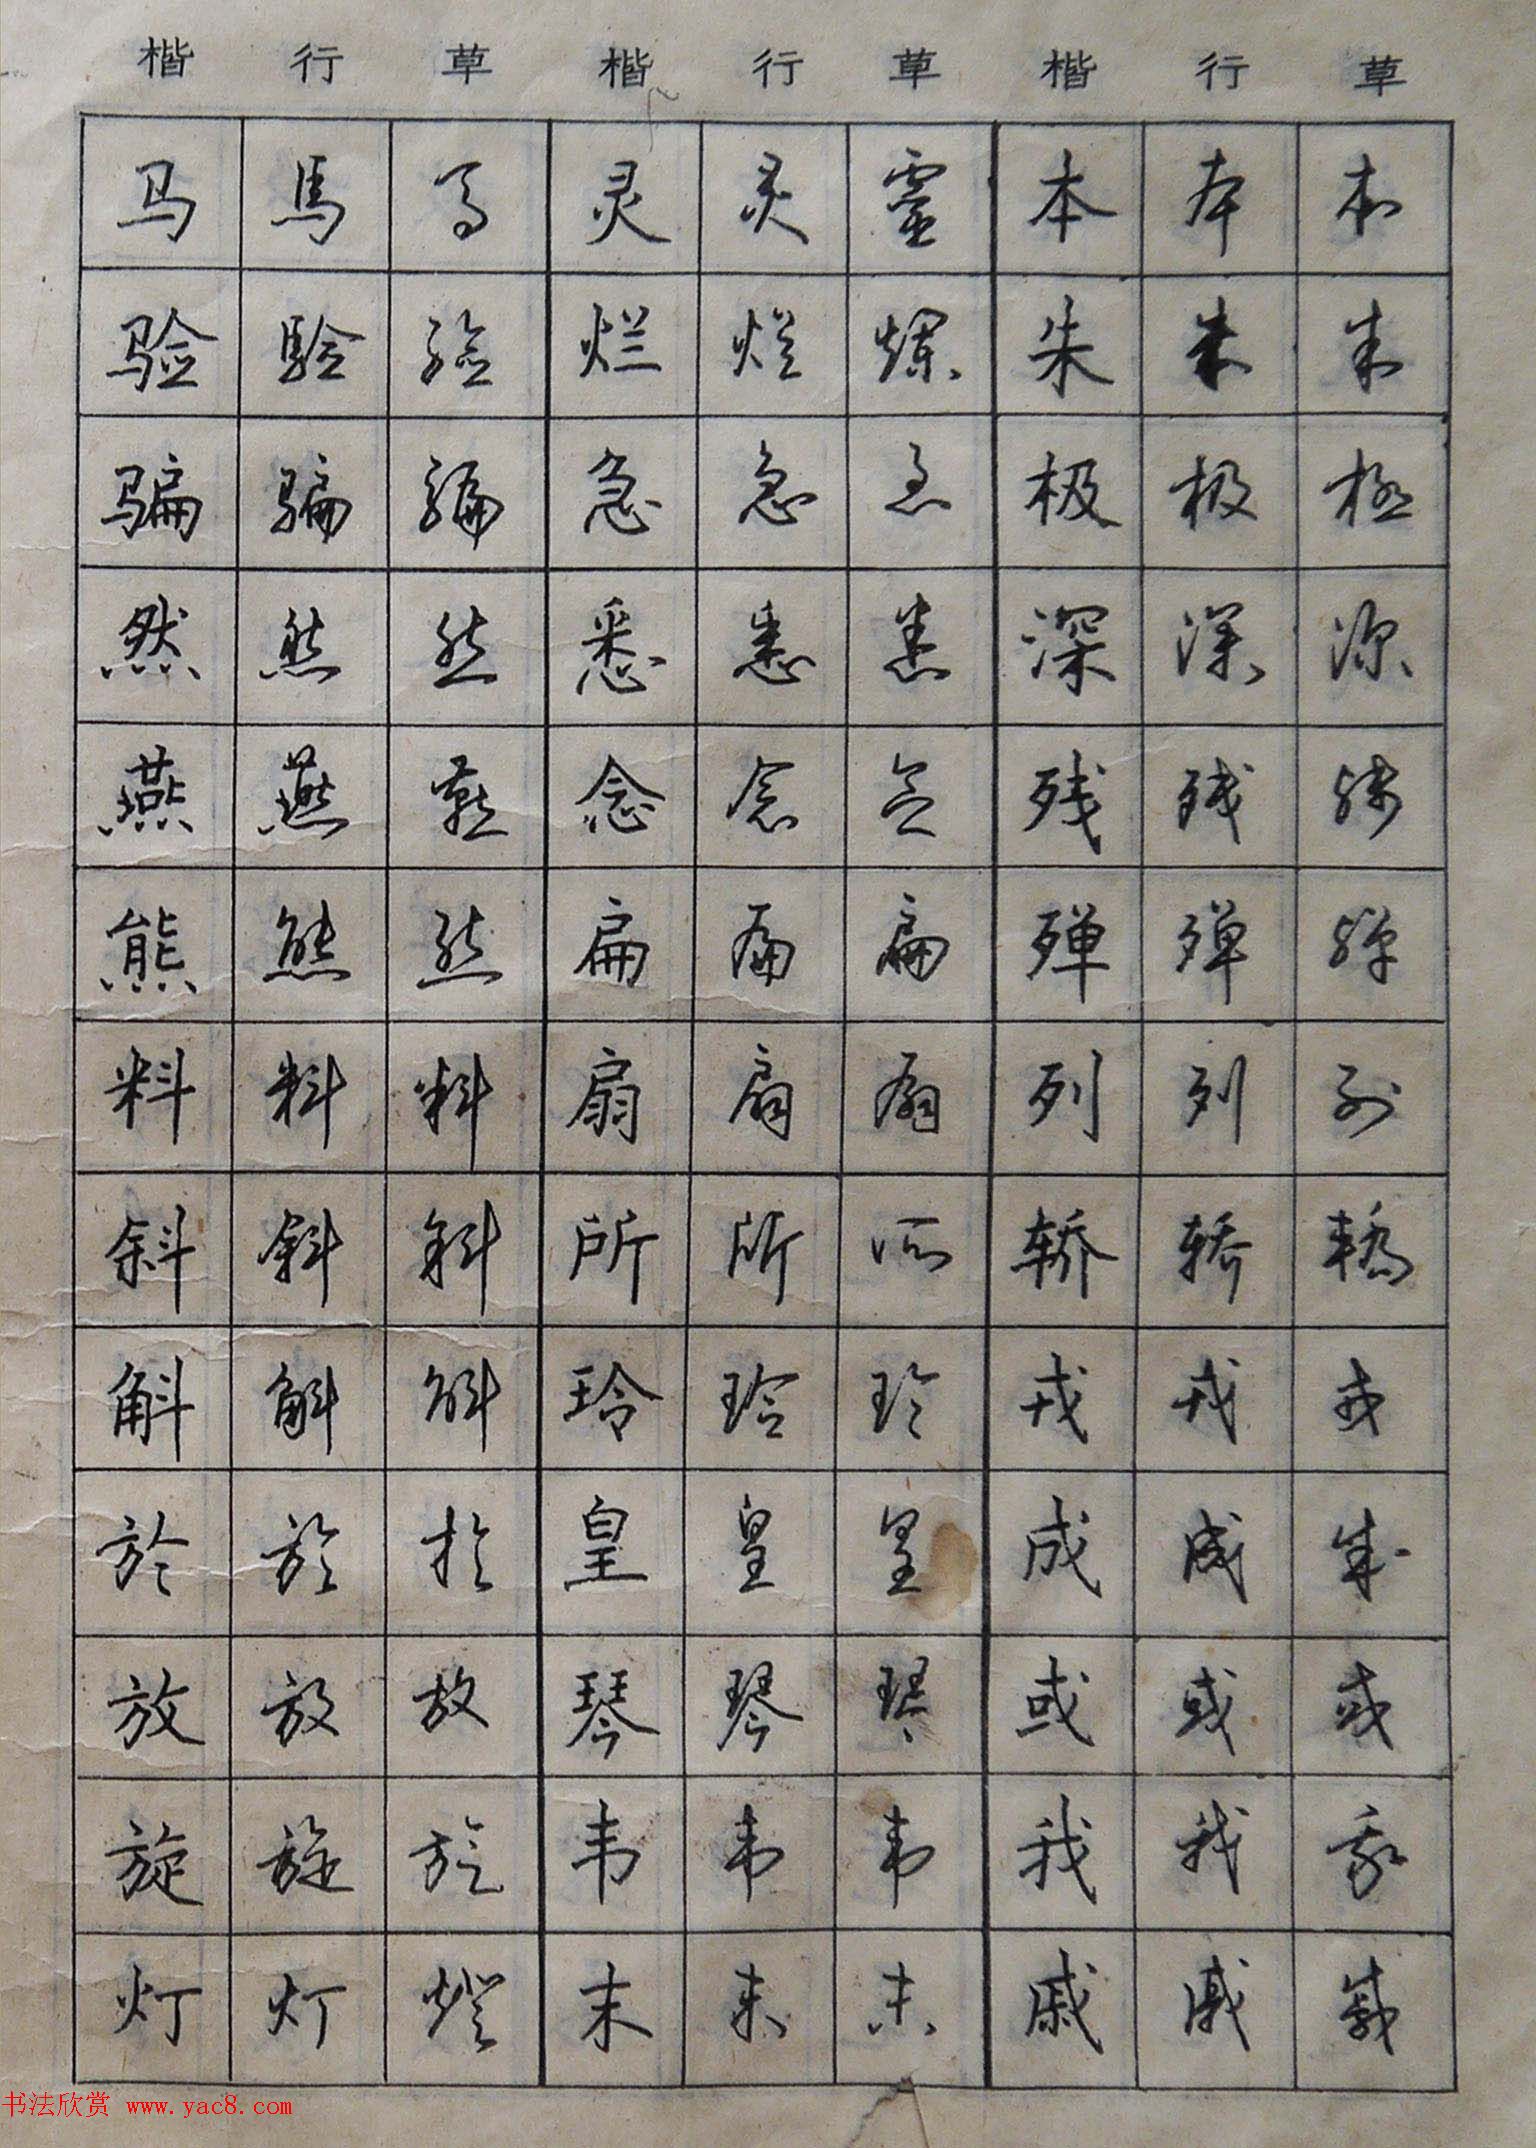 楷 行 草 楷 行 草 楷 行 草
马 馬 马 灵 灵 靈 本 本 本
验 験 验 烂 烂 爛 朱 朱 朱
骗 骗 骗 急 急 急 极 极 極
然 然 然 悉 悉 悉 深 深 深
燕 燕 燕 念 念 念 残 残 残
熊 熊 熊 扁 扁 扁 殚 殚 殚
料 料 料 扇 扇 扇 列 列 列
斜 斜 斜 所 所 所 轿 轿 轎
斛 斛 斛 玲 玲 玲 戎 戎 戎
於 於 於 皇 皇 皇 成 成 成
放 放 放 琴 琴 琴 或 或 或
旋 旋 旋 韦 韦 韦 我 我 我
灯 灯 燈 末 末 末 戚 戚 戚
书法欣赏 www.yac8.com